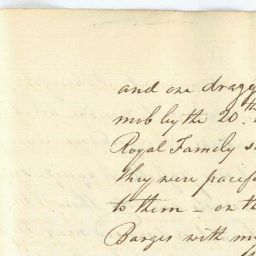 and one dragg
mob by the 20th.
Royal Family s
they were pacif
to them - on th
Barges with m